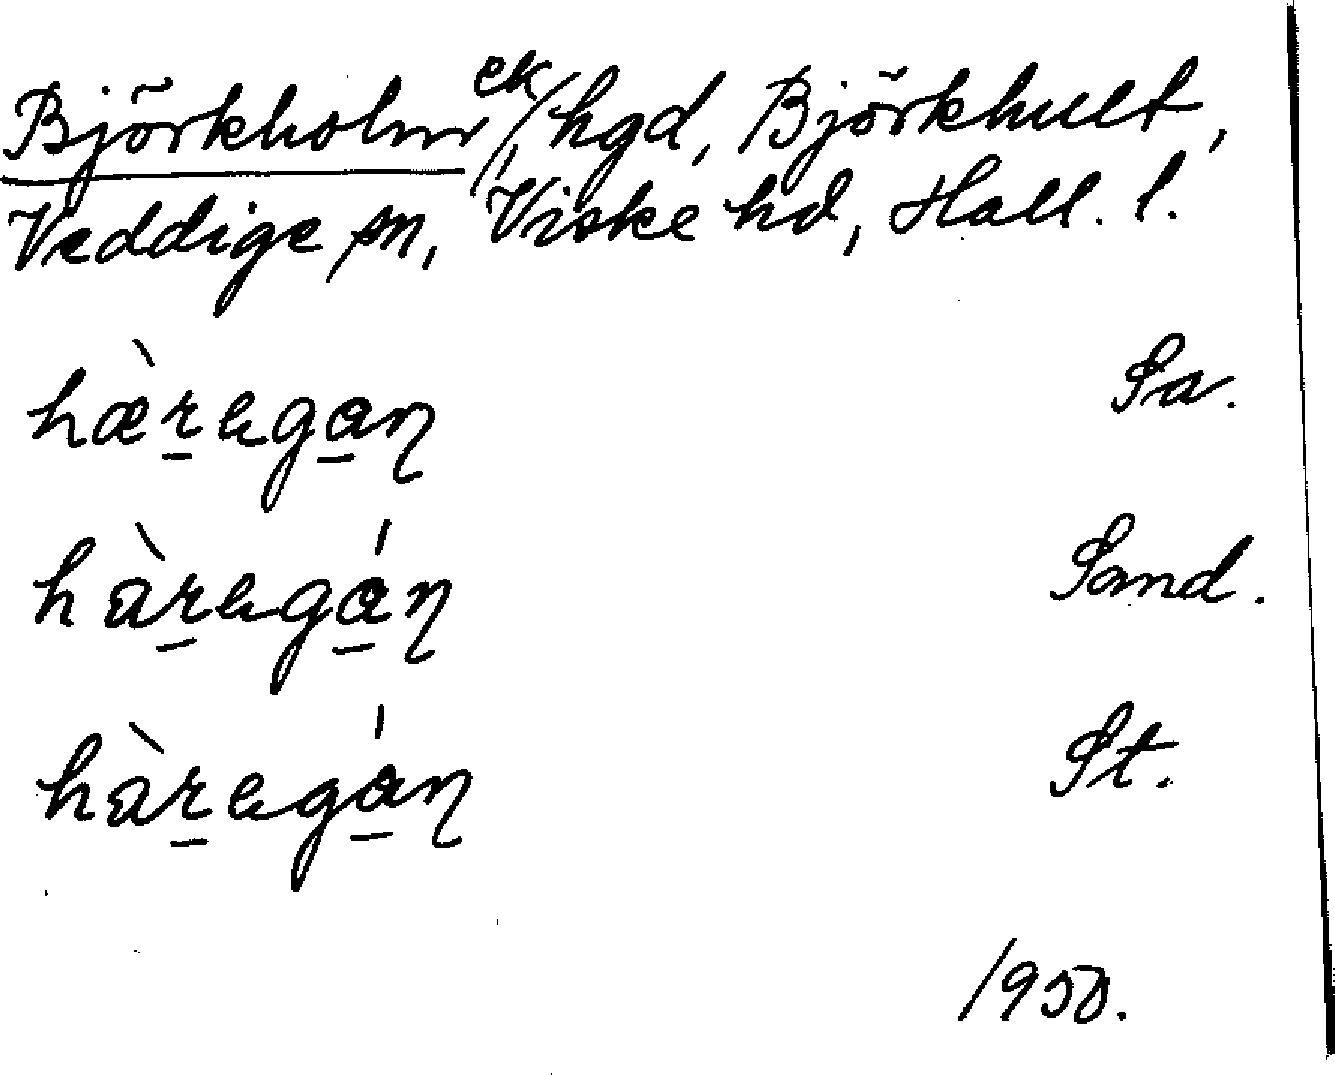 Björkholm ek/, hgd, Björkhult,
Veddige sn, Viske hd, Hall. l.
hæ̀r̲ɐga̲ɳ Sa.
hàr̲ɐgá̲ɳ Sand.
hàr̲ɐgá̲ɳ St.
1950.